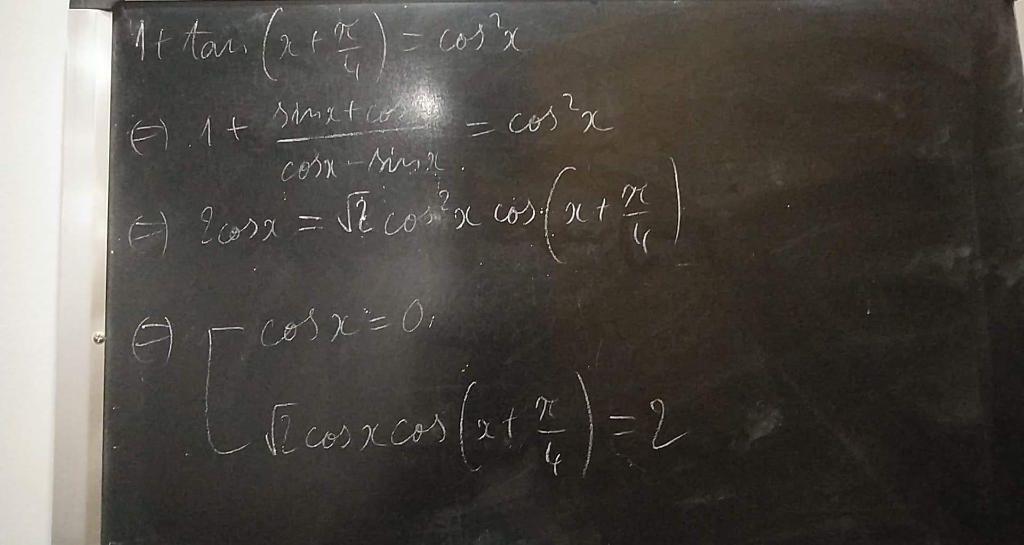 1 + tan (x + π/4) = cos²x
⇔ 1 + (sinx + cosx)/(cosx - sinx) = cos²x
⇔ 2cosx = √2 cos²x cos (x + π/4)
⇔ [ cosx = 0
√2 cosx cos (x + π/4) = 2